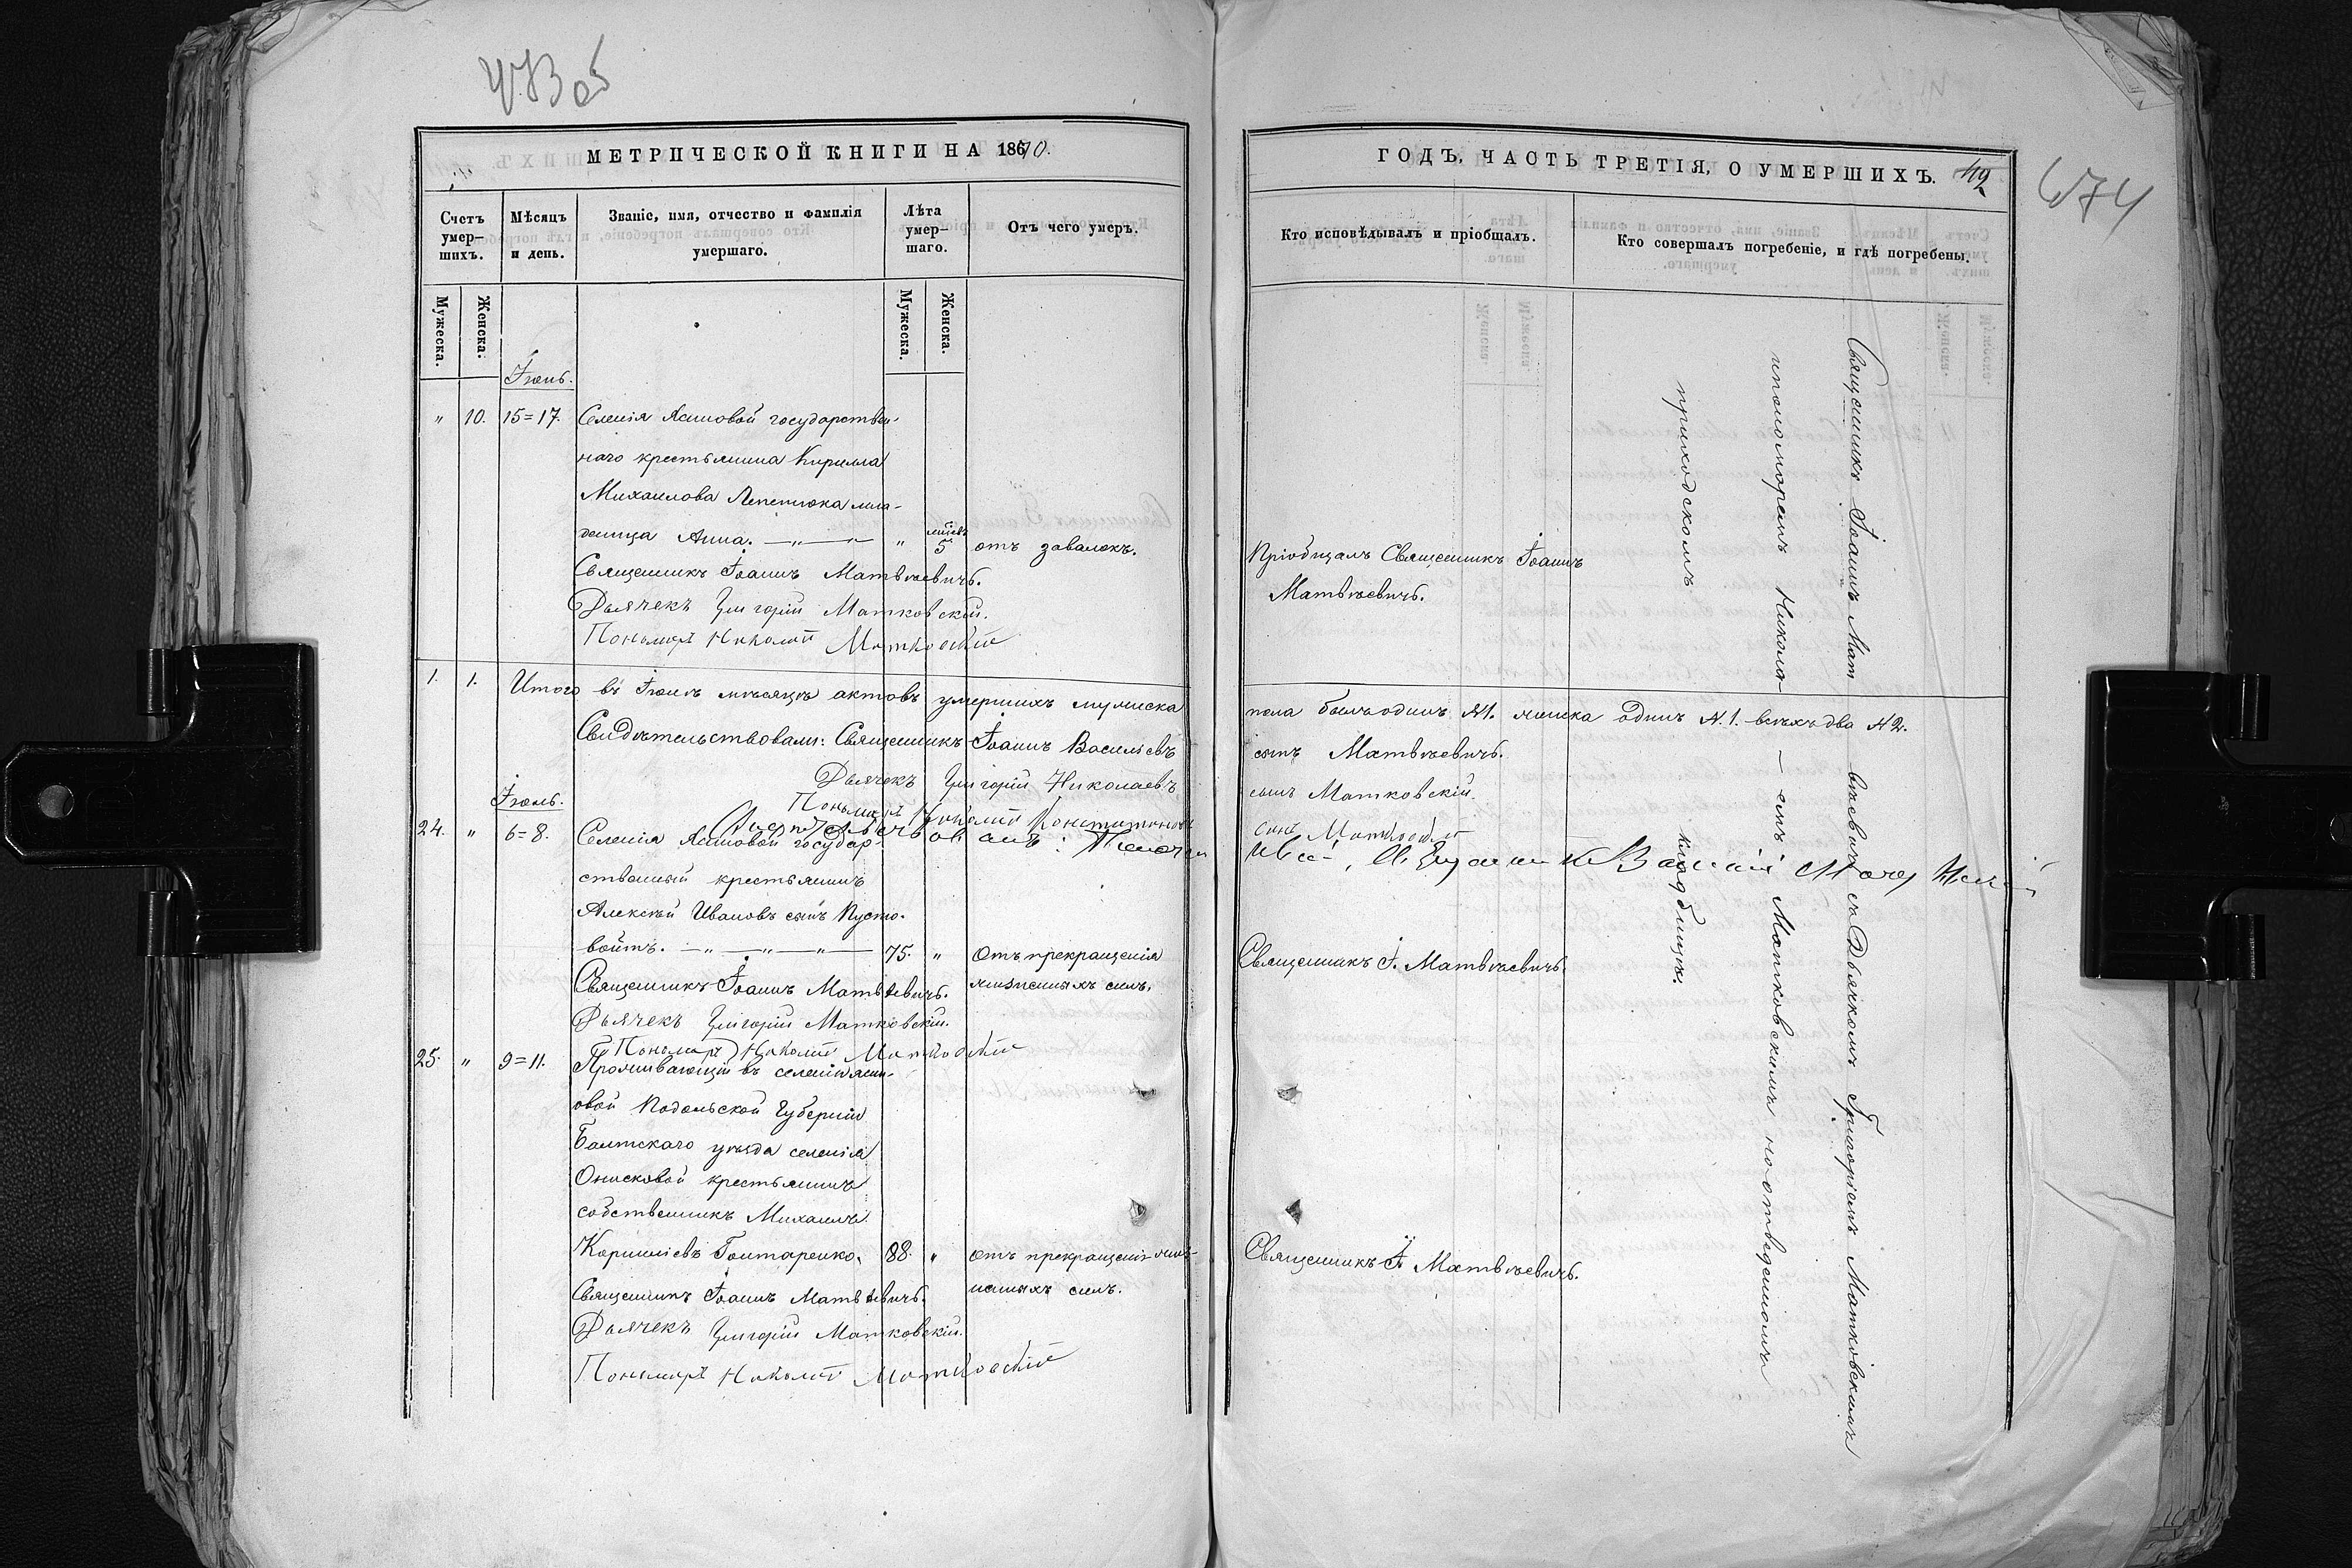 МЕТРИЧЕСКОЙ КНИГИ НА 1870.
Счетъ умер-шихъ.
Мѣсяцъ и день.
Званіе, имя, отчество и фамилія умершаго.
Лѣта умер-шаго.
Отъ чего умеръ.
Мужеска.
Женска.
Мужеска.
Женска.
Іюнь.
" 10. 15=17. Селенія Ясиновой государствен-
наго крестьянина Кирилла
Михаилова Лепетюка мла-
денца Анна. " 5 отъ завалокъ.
Священникъ Іоаннъ Матвѣевичъ.
Дьячекъ Григорій Матковскій.
Пономарь Николай Матковскій
1. 1. Итого въ Іюнѣ мѣсяцѣ актовъ умершихъ мужеска
Свидѣтельствовали: Священникъ Іоаннъ Василіевъ
Дьячекъ Григорій Николаевъ
Пономарь Николай
Іюль.
24. " 6=8. Селенія Ясиновой государ-
ственный крестьянинъ
Алексѣй Ивановъ сынъ Пусто-
войтъ. 75. " Отъ прекращенія
жизненныхъ силъ.
Священникъ Іоаннъ Матвѣевичъ.
Дьячекъ Григорій Матковскій.
Пономарь Николай Матковскій
25. " 9=11. Проживающій въ селеніи Ясин-
овой Подольской Губерніи
Балтскаго уѣзда селенія
Онисковой крестьянинъ
собственникъ Михаилъ
Корниліевъ Гонтаренко. 88. " отъ прекращенія жиз-
ненныхъ силъ.
Священникъ Іоаннъ Матвѣевичъ.
Дьячекъ Григорій Матковскій.
Пономарь Николай Матковскій
ГОДЪ, ЧАСТЬ ТРЕТІЯ, О УМЕРШИХЪ.
674
Кто исповѣдывалъ и пріобщалъ.
Кто совершалъ погребеніе, и гдѣ погребены.
Пріобщалъ Священникъ Іоаннъ
Матвѣевичъ.
пола былъ одинъ №1. женска одинъ №.1. всѣхъ два №2.
сынъ Матвѣевичъ.
сынъ Матковскій.
сынъ Матковскій
Священникъ І. Матвѣевичъ.
Священникъ І. Матвѣевичъ.
Священникъ Іоаннъ Мат вѣевичъ съ Дьячкомъ Григоріемъ Матковскимъ
и пономоремъ Никола- — емъ Матковскимъ на отведенномъ
приходскомъ кладбищѣ.